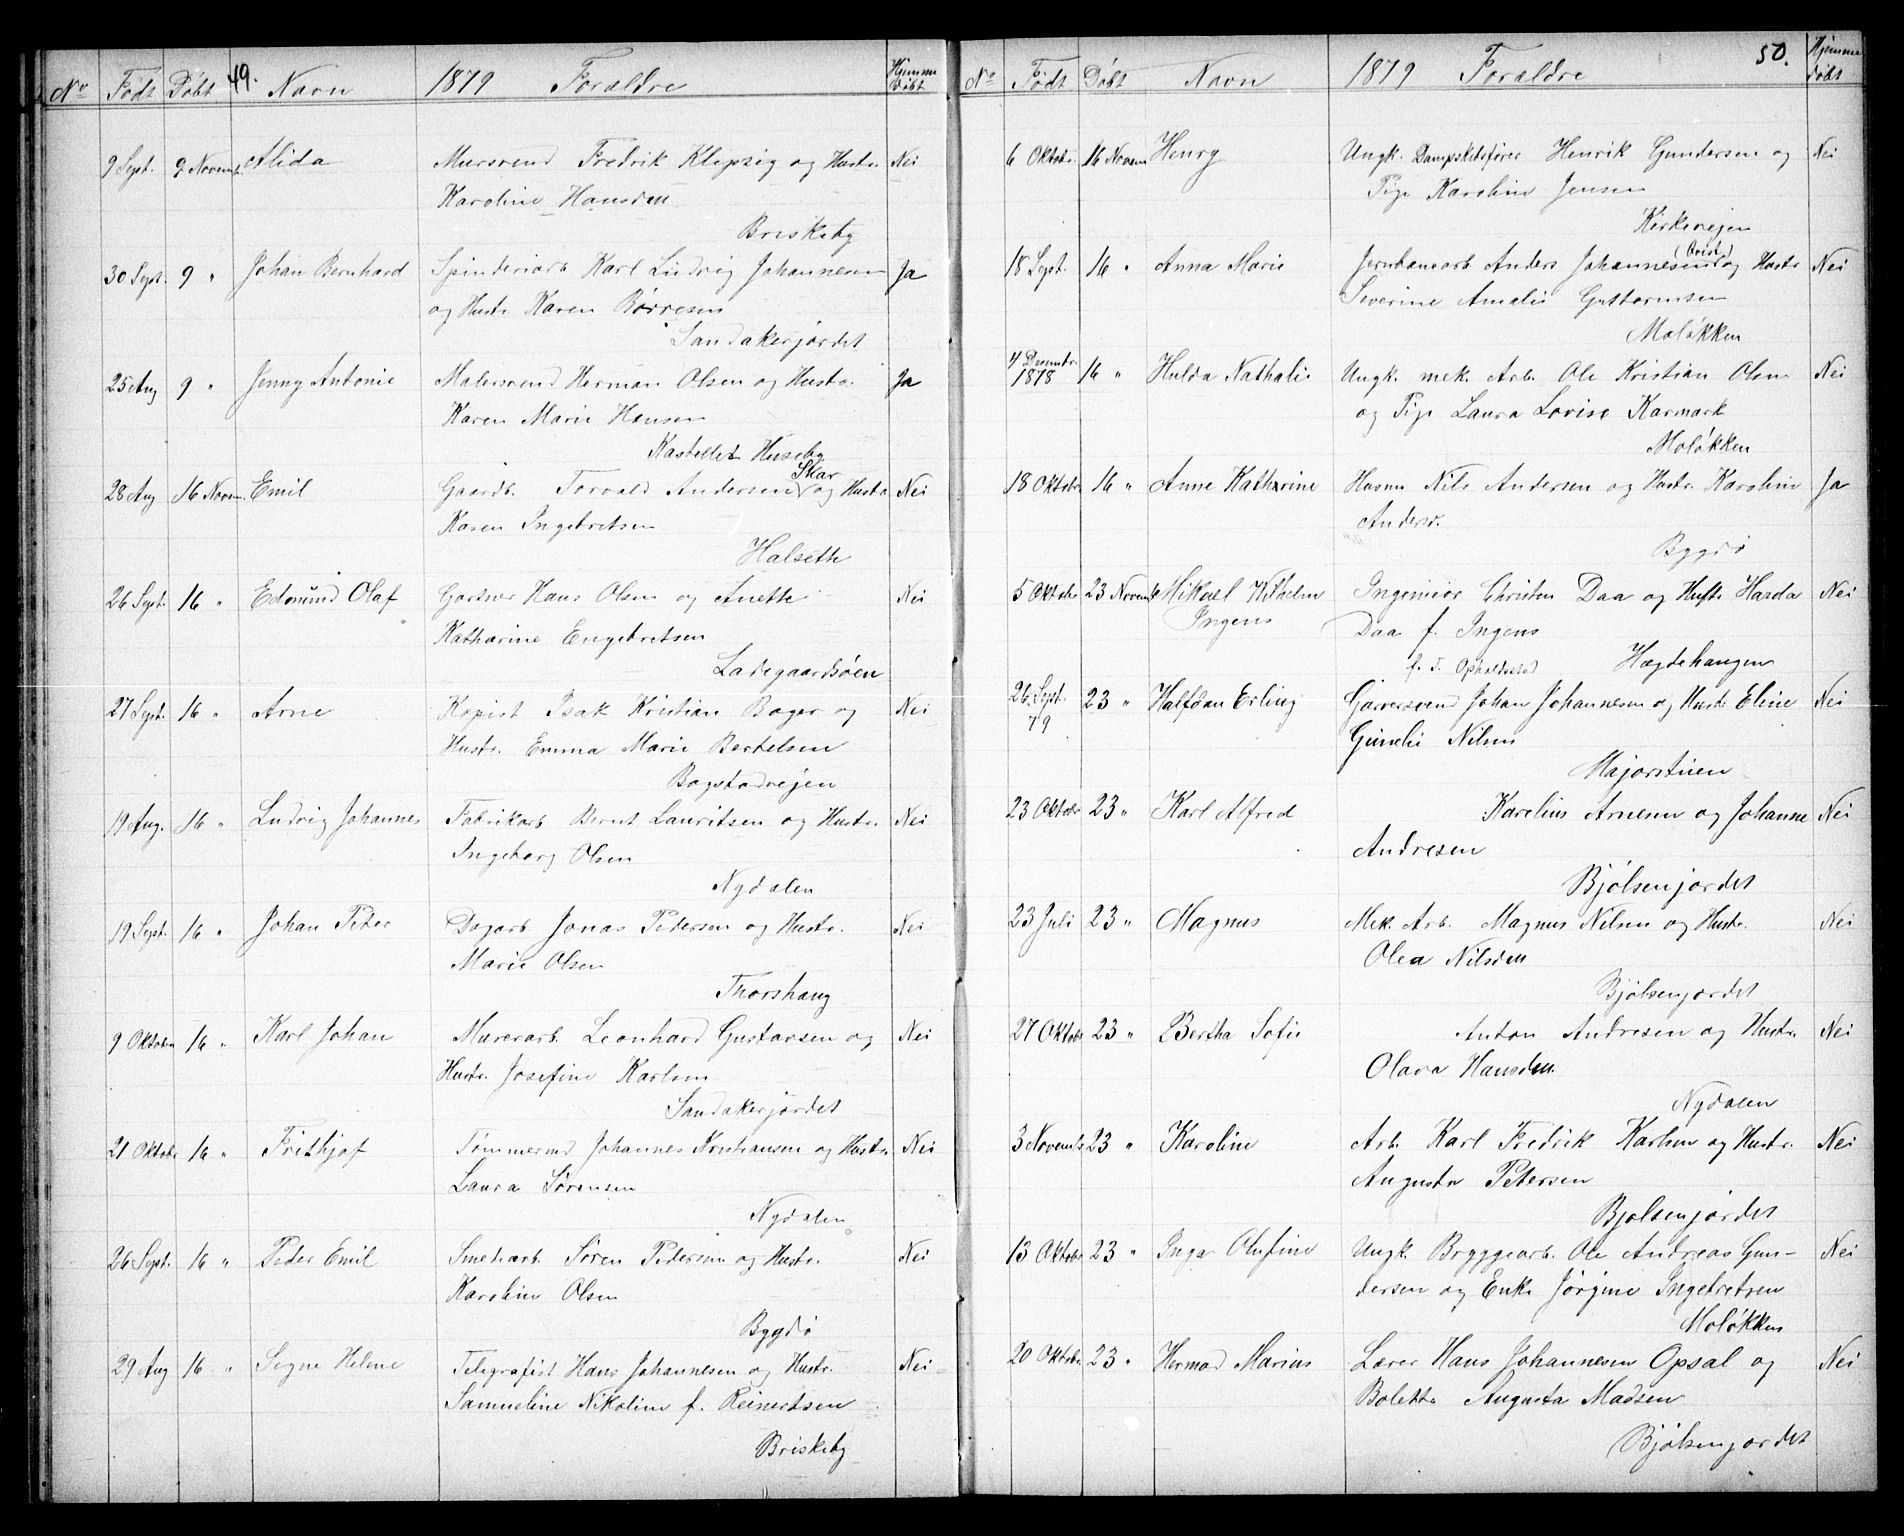 49.
No Født Døbt Navn 1879 Forældre Hjemme døbt
9 Sept. 9 Novemb. Alida Mursvend Fredrik Klipzig og Hustr. Nei
Karoline Hansden
Briskeby
30 Sept. 9 " Johan Bernhard Spinderiarb Karl Ludvig Johannesen Ja
og Hustr. Karen Børresen
Sandakerjordet
25 Aug 9 " Jenny Antonie Malersvend Herman Olsen og Hustr. Ja
Karen Marie Hansen
Kastellet Huseby
28 Aug 16 Novem. Emil Gaardb. Torvald Andersen Skar og Hustr Nei
Karen Ingebretsen
Halseth
26 Sept. 16 " Edmund Olaf Gartner Hans Olsen og Anette Nei
Katharine Engebretsen
Ladegaardsøen
27 Sept. 16 " Arne Kopist Isak Kristian Boger og Nei
Hustr. Emma Marie Bertelsen
Bogstadvejen
19 Aug. 16 " Ludvig Johannes Fabrikarb Bernt Lauritsen og Hustr. Nei
Ingeborg Olsen
Nydalen
19 Sept. 16 " Johan Peter Dagarb Jonas Petersen og Hustr. Nei
Marie Olsen
Thorshaug
9 Oktober 16 " Karl Johan Murerarb. Leonhard Gustavsen og Nei
Hustr. Josefine Karlsen
Sandakerjordet
21 Oktobr 16 " Frithjof Tømmermd Johannes Kristiansen og Hustr. Nei
Laura Sørensen
Nydalen
26 Sept. 16 " Peder Emil Smedarb. Søren Pedersen og Hustr. Nei
Karoline Olsen
Bygdø
29 Aug 16 " Signe Helene Telegrafist Hans Johannesen og Hustr. Nei
Samueline Nikoline f. Reinertsen
Briskeby
50.
No Født Døbt Navn 1879 Forældre Hjemme døbt
6 Oktobr. 16 Novem Henry Ungk. Dampskibsfører Henrik Gundersen og Nei
Pige Karoline Jensen
Kirkevejen
18 Sept. 16 " Anna Marie Jernbanearb Anders Johannesen og Hustr Nei
Severine Amalie Guttormsen
Moløkken
4 Decembr. 1878 16 " Hulda Nathalie Ungk. mek. Arb. Ole Kristian Olsen Nei
og Pige Laura Lovise Karmark
Moløkken
18 Oktobr 16 " Anne Kathrine Husmd Nils Andersen og Hustr. Karoline Ja
Andersd.
Bygdø
5 Oktobr 23 Novemb Mikael Wilhelm Ingens Ingeniør Christen Daa og Hustr. Harda Nei
Daa f. Ingens
f. T. Opholdssted Hægdehaugen
26 Sept. 79 23 " Halfdan Erling Garversvend Johan Johannesen og Hustr. Eline Nei
Gunelie Nilsen
Majorstuen
23 Oktobr 23 " Karl Alfred Karelius Arnesen og Johanne Nei
Andresen
Bjølsenjordet
23 Juli 23 " Magnus Mek. Arb. Magnus Nilsen og Hustr. Nei
Olea Nilsden
Bjølsenjordet
27 Oktobr 23 " Bertha Sofie Anton Andresen og Hustr. Nei
Olava Hansden
Nydalen
3 Novembr 23 " Karoline Arb. Karl Fredrik Karlsen og Hustr. Nei
Augusta Petersen
Bjølsenjordet
13 Oktobr 23 " Inga Olufine Ungk. Bryggearb. Ole Andreas Gun- Nei
dersen og Enke Jørgine Ingebretsen
Moløkken
20 Oktobr 23 " Hermod Marius Lærer Hans Johannesen Opsal og Nei
Bolette Augusta Madsen
Bjølsenjordet